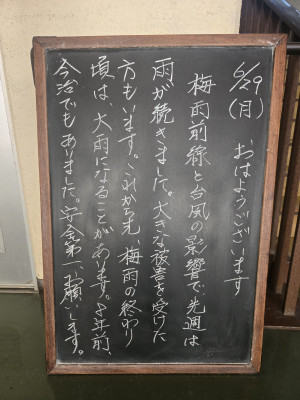 6/29(月) おはようございます
梅雨前線と台風の影響で、先週は
雨が続きました。大きな被害を受けた
方もいます。これから先、梅雨の終わり
頃は、大雨になることがあります。2年前、
今治でもありました。安全第一でお願いします。